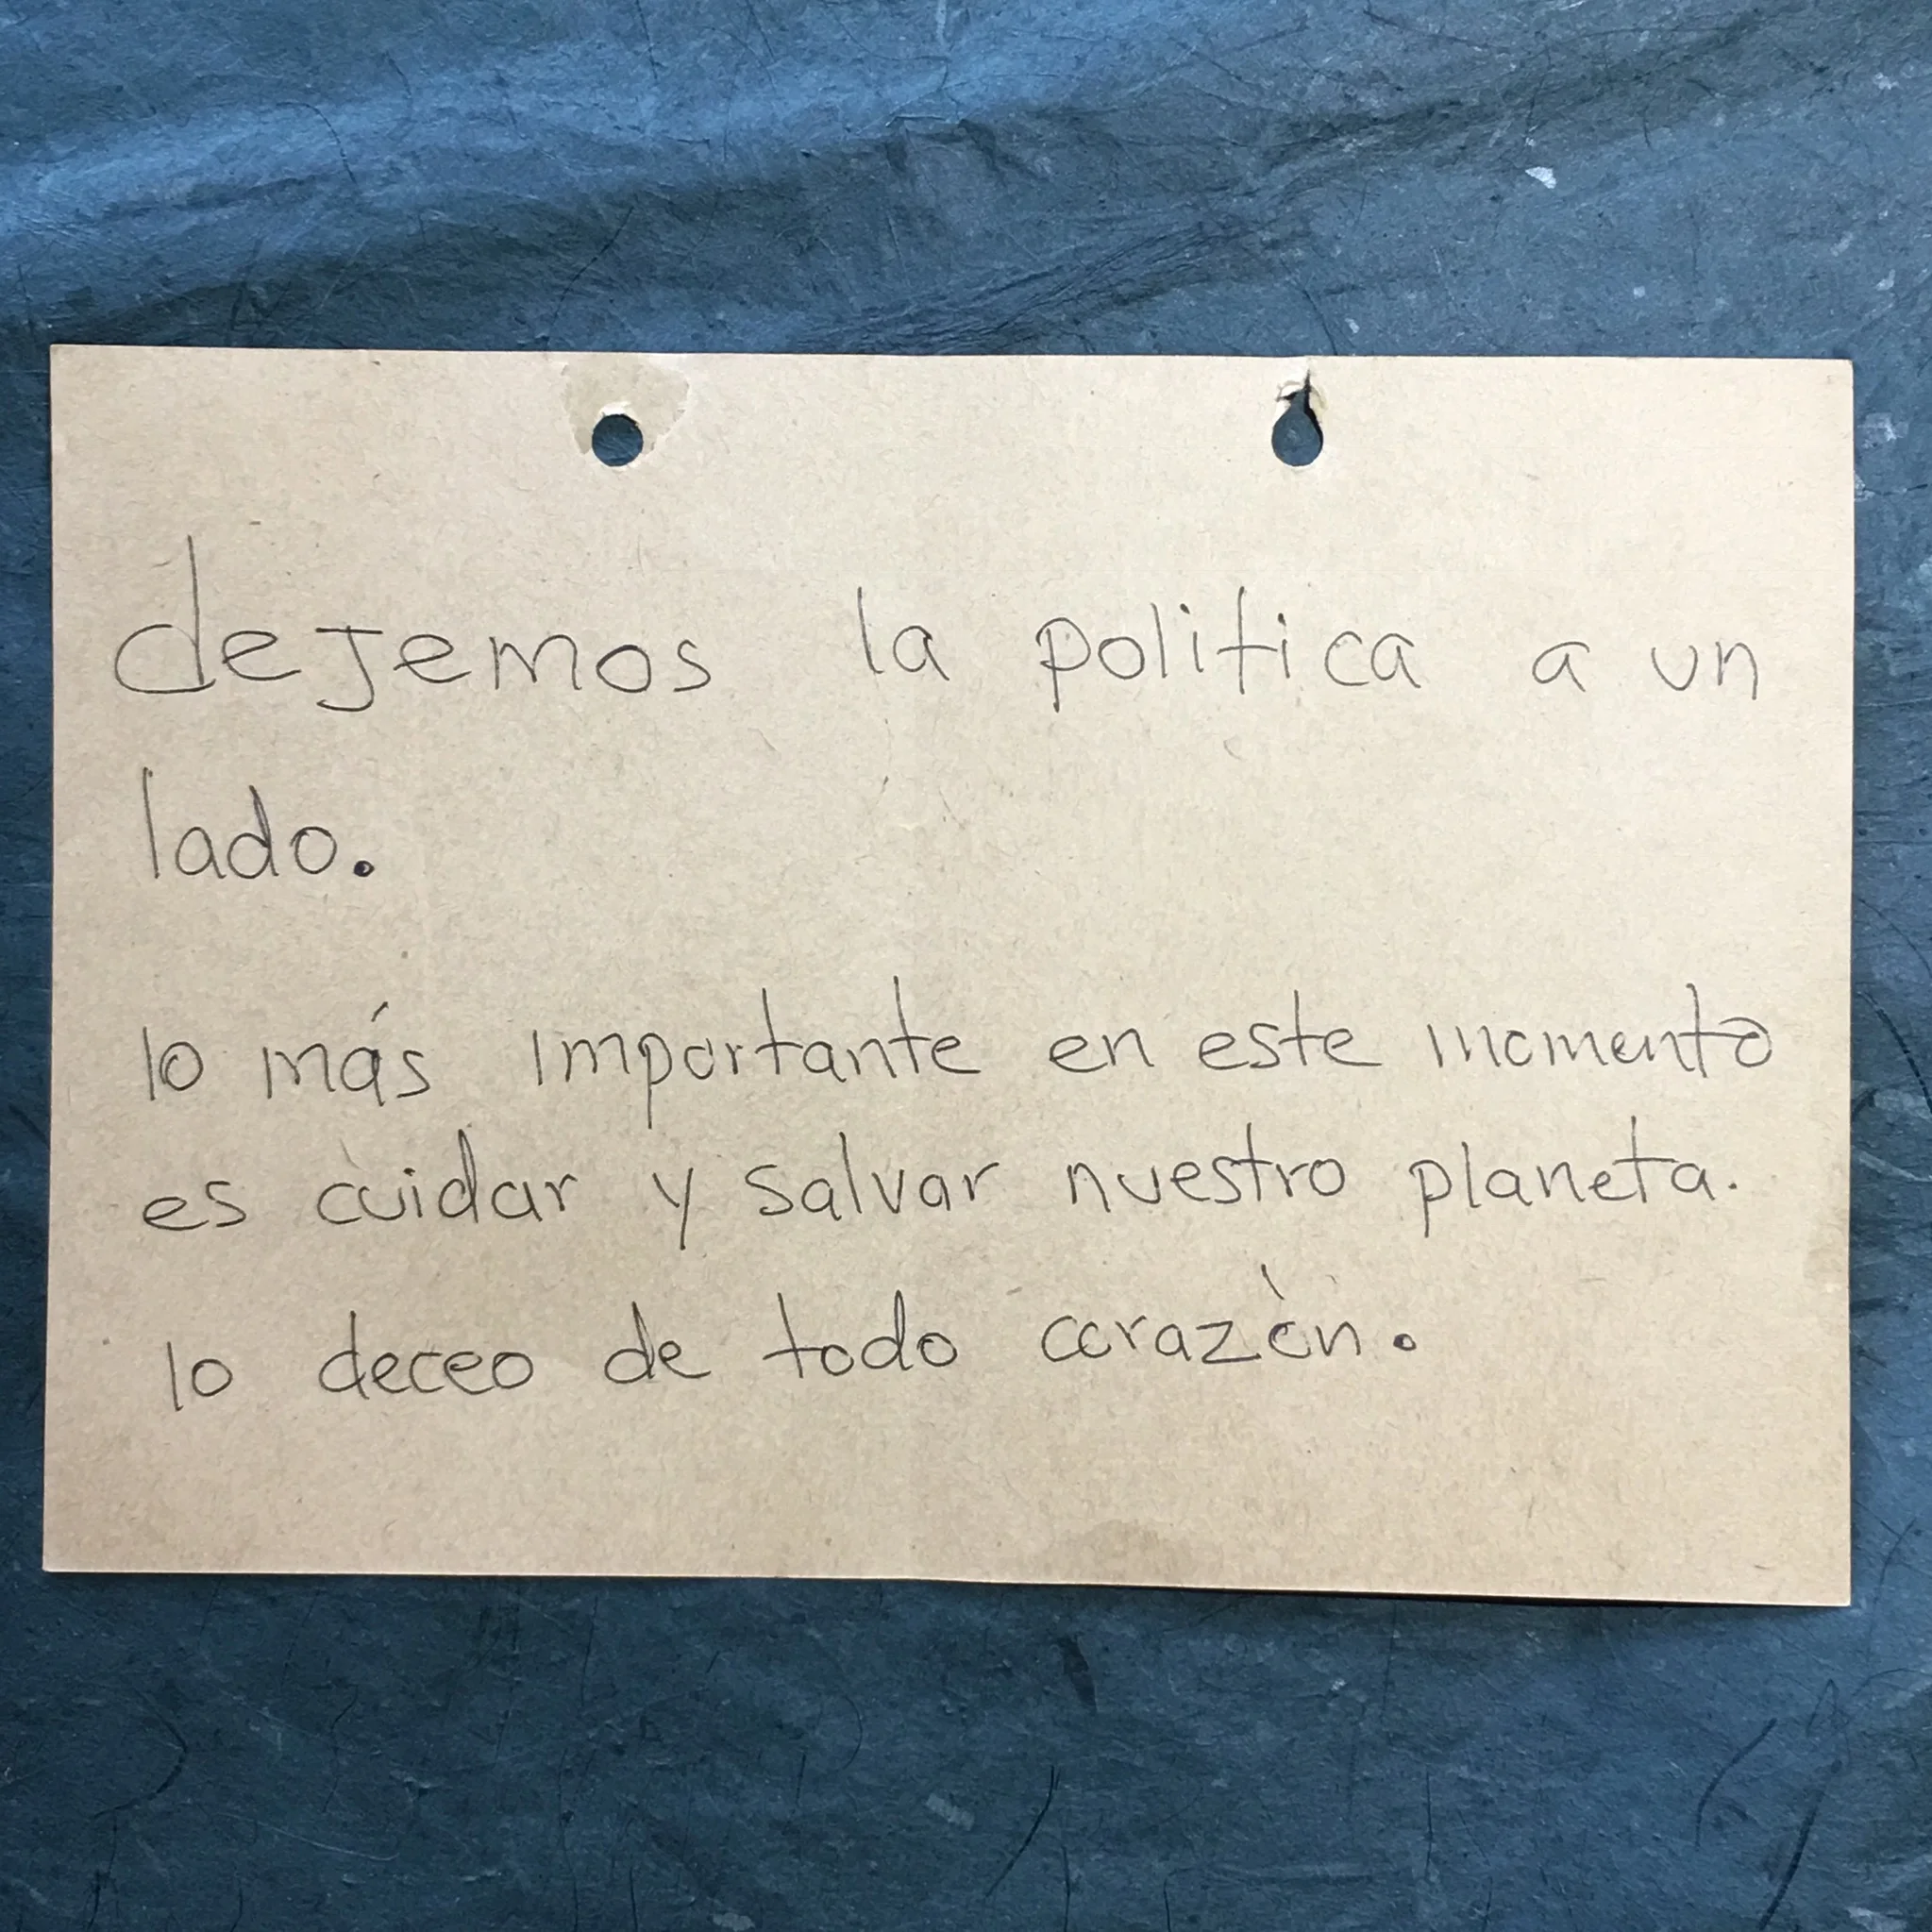 dejemos la politica a un
lado.
lo más importante en este momento
es cuidar y salvar nuestro planeta.
lo deceo de todo corazòn.